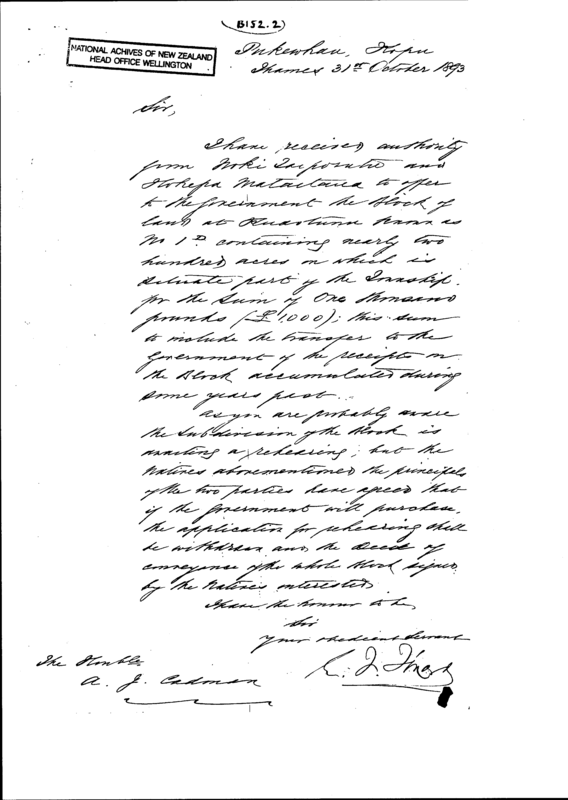 (B152.2)
NATIONAL ACHIVES OF NEW ZEALAND
HEAD OFFICE WELLINGTON
Pukewhau, Kopu
Thames 31st October 1893
Sir,
I have received authority
from and
to offer
to the Government the Block of
land at Kuaotunu known as
No 1D containing nearly two
hundred acres on which is
situate part of the Township.
for the sum of One thousand
pounds (£1,000); this sum
to include the transfer to the
Government of the receipts on
the Block accumulated during
some years past.
As you are probably aware
the subdivision of the Block is
awaiting a rehearing; but the
Natives abovementioned the principals
of the two parties have agreed that
if the Government will purchase,
the application for rehearing shall
be withdrawn and the Deed of
conveyance of the whole Block signed
by the Natives interested.
I have the honour to be,
Sir
Your obedient Servant
The Honble
A. J. Cadman